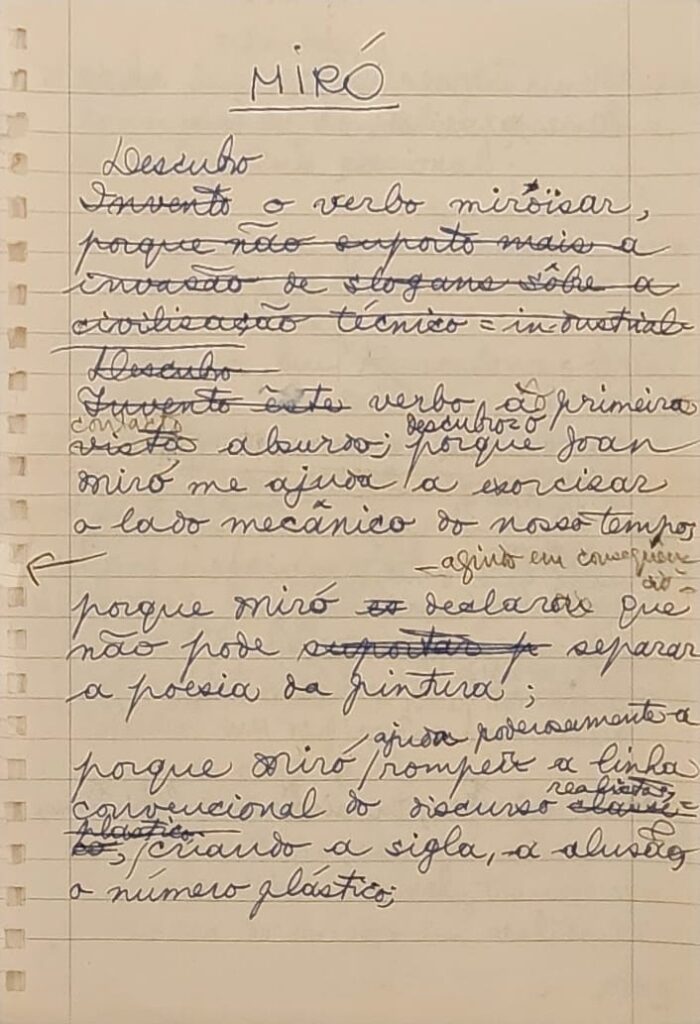 MIRÓ
Descubro
Invento o verbo miróisar,
porque não suporto mais a
invasão de slogans sôbre a
civilisação técnico=industrial
Descubro
Invento êste verbo, à primeira
contacto descubro-o
vista absurdo; porque Joan
Miró me ajuda a exorcisar
o lado mecânico do nosso tempo;
– agindo em consequên
cia –
porque Miró declarou que
não pode suportar separar
a poesia da pintura;
ajuda poderosamente a
porque Miró rompeu a linha
convencional do discurso
plástico
co, criando a sigla, a alusão,
o número plástico;